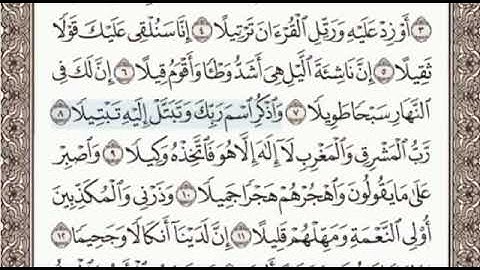 ٣ أَوْ زِدْ عَلَيْهِ وَرَتِّلِ ٱلْقُرْءَانَ تَرْتِيلًا ٤ إِنَّا سَنُلْقِى عَلَيْكَ قَوْلًا
ثَقِيلًا ٥ إِنَّ نَاشِئَةَ ٱلَّيْلِ هِىَ أَشَدُّ وَطْـًٔا وَأَقْوَمُ قِيلًا ٦ إِنَّ لَكَ فِى
ٱلنَّهَارِ سَبْحًا طَوِيلًا ٧ وَٱذْكُرِ ٱسْمَ رَبِّكَ وَتَبَتَّلْ إِلَيْهِ تَبْتِيلًا ٨
رَّبُّ ٱلْمَشْرِقِ وَٱلْمَغْرِبِ لَآ إِلَٰهَ إِلَّا هُوَ فَٱتَّخِذْهُ وَكِيلًا ٩ وَٱصْبِرْ
عَلَىٰ مَا يَقُولُونَ وَٱهْجُرْهُمْ هَجْرًا جَمِيلًا ١٠ وَذَرْنِى وَٱلْمُكَذِّبِينَ
أُو۟لِى ٱلنَّعْمَةِ وَمَهِّلْهُمْ قَلِيلًا ١١ إِنَّ لَدَيْنَآ أَنكَالًا وَجَحِيمًا ١٢